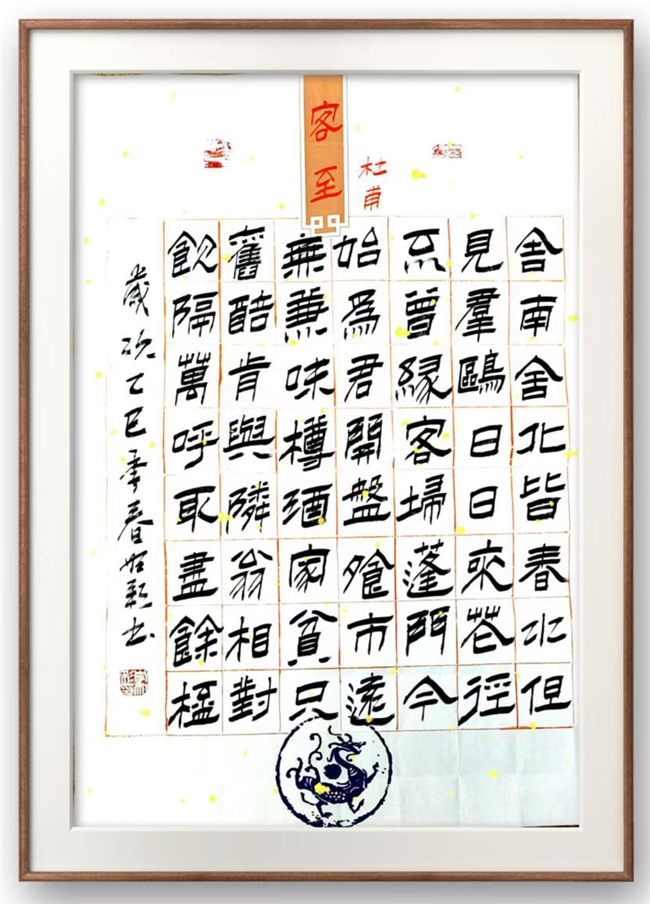 客至
杜甫
舍南舍北皆春水但
見羣鷗日日來花徑
不曾緣客埽蓬門今
始爲君開盤飧市遠
無兼味樽酒家貧只
舊醅肯與隣翁相對
飲隔萬呼取盡餘杯
歲次乙巳季春书